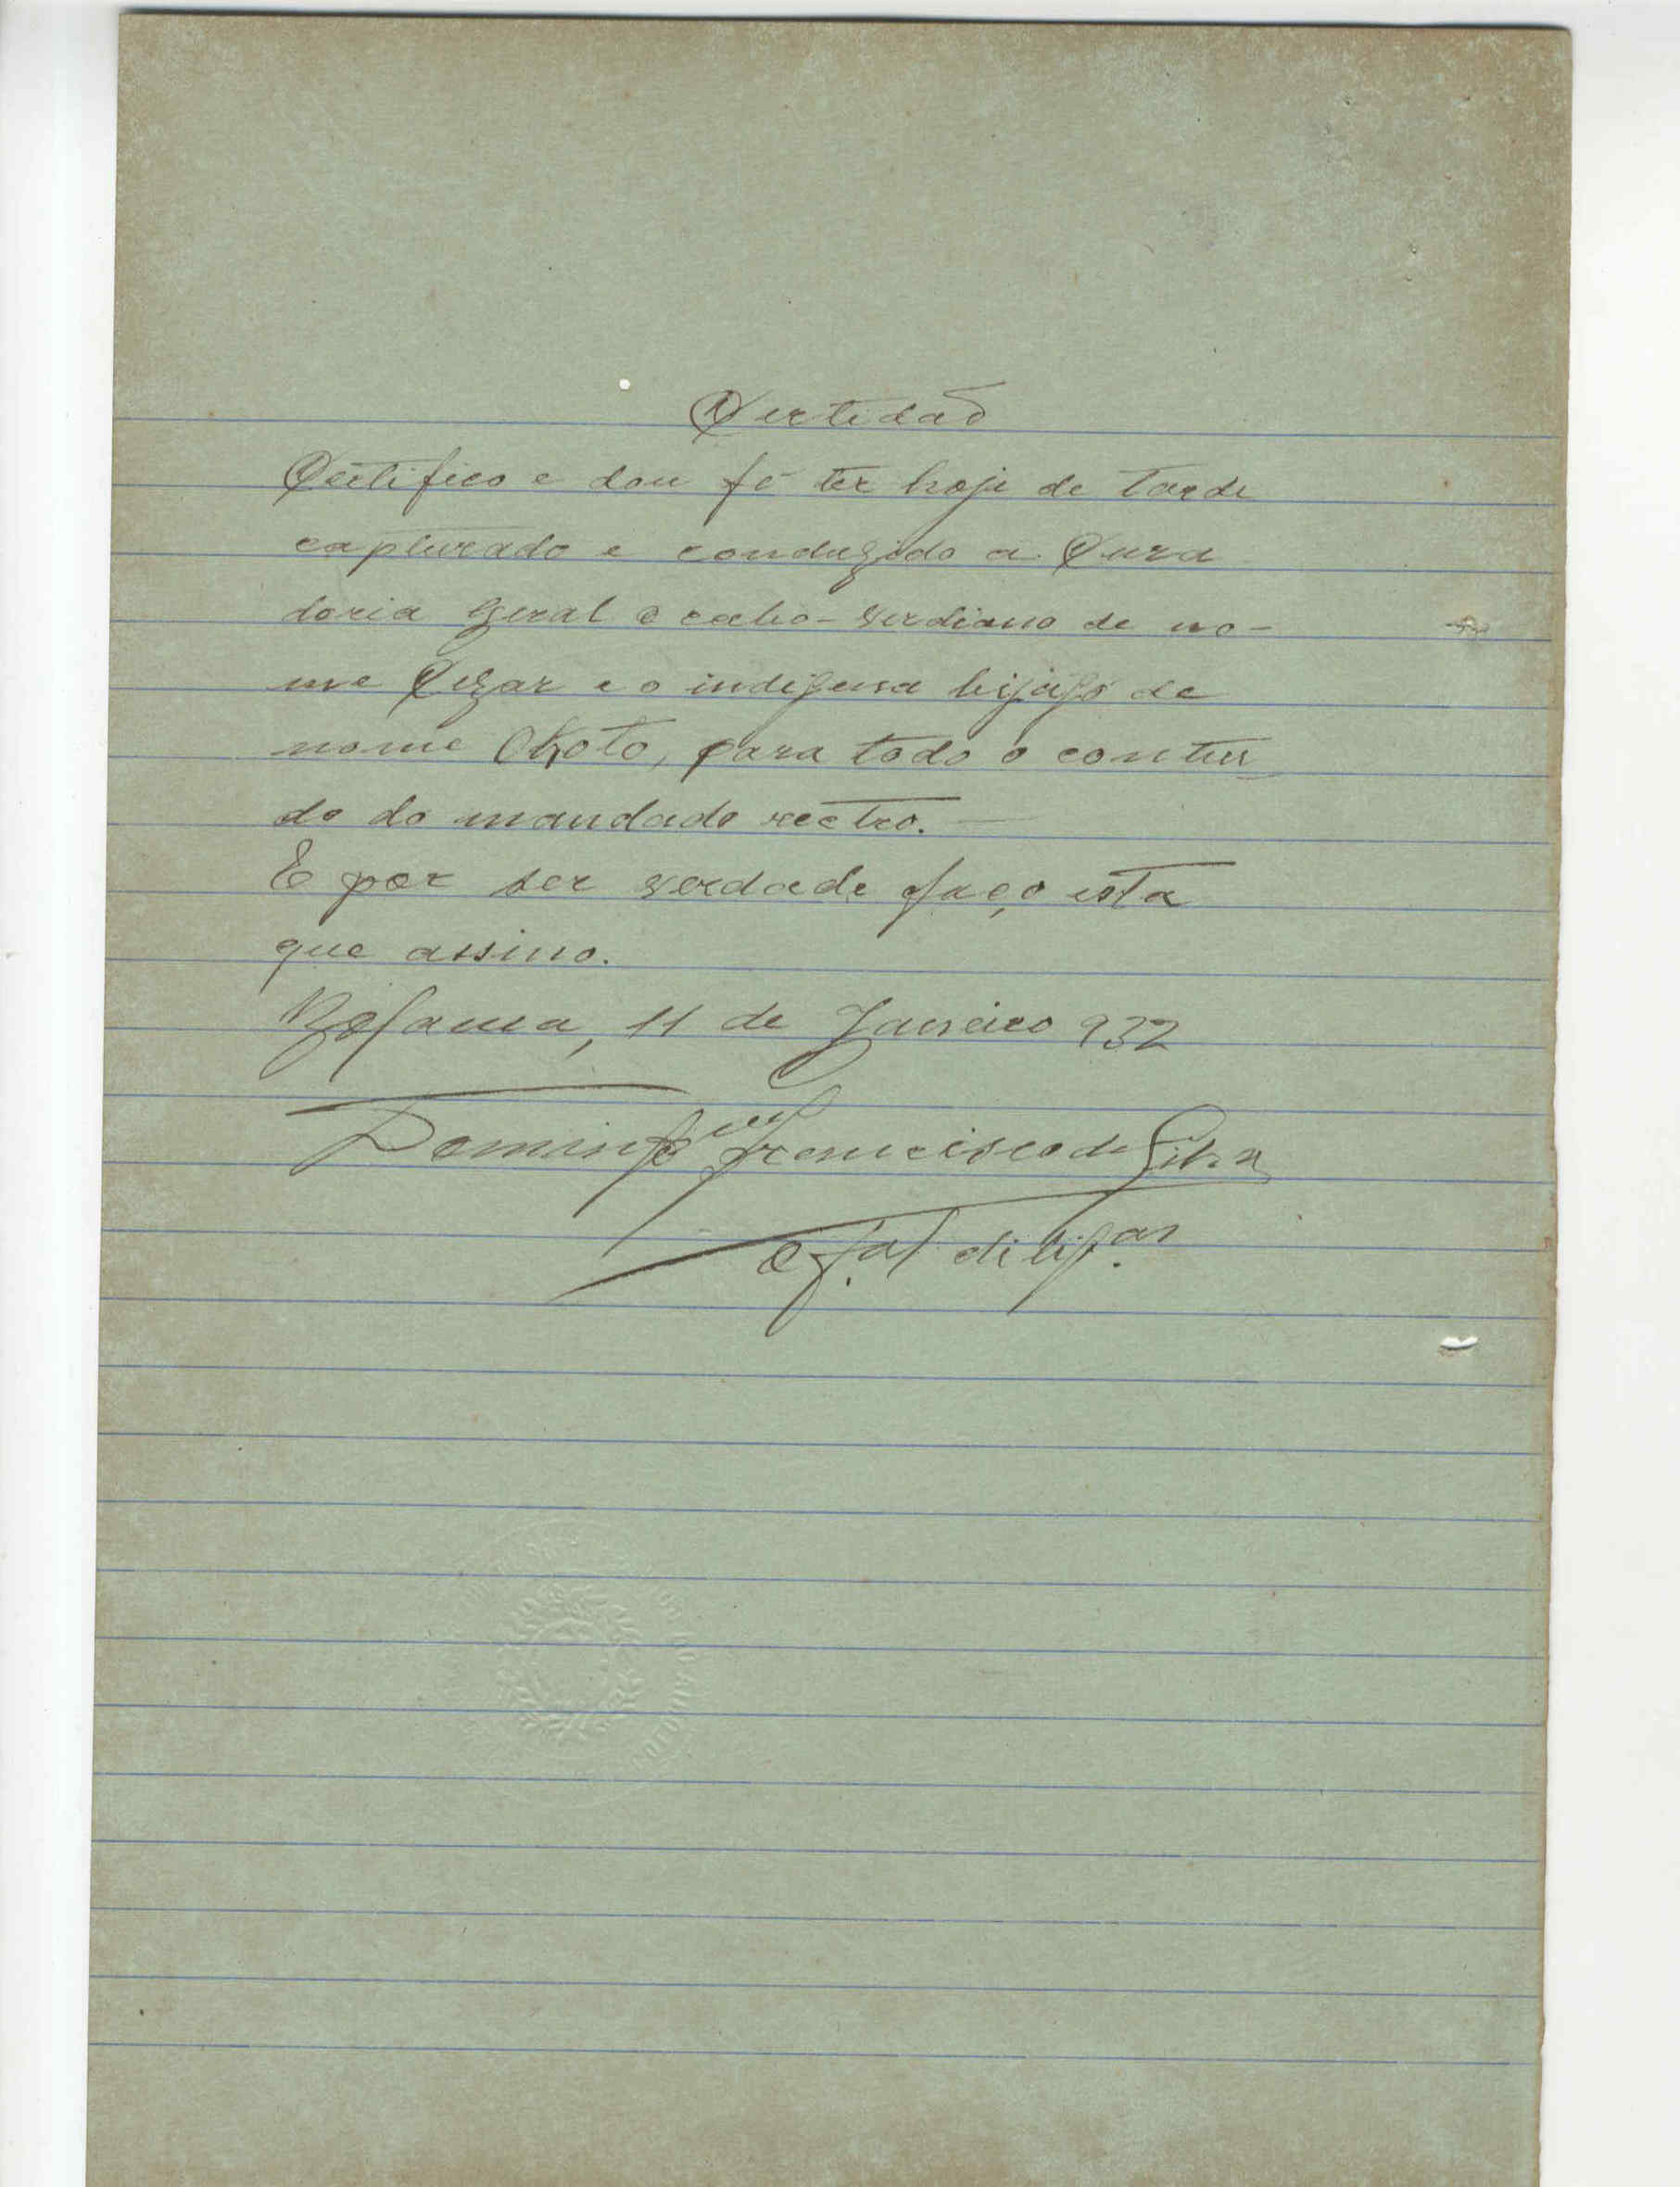 Certidão
Certifico e dou fé ter hoje de tarde
capturado e conduzido a Cura
doria Geral o cabo-verdiano de no-
me Cezar e o indigena bijagó de
nome Okoto, para todo o conteu
do do mandado rectro.
E por ser verdade faço esta
que assino.
Bolama, 11 de Janeiro 932
Domingos Francisco da Silva